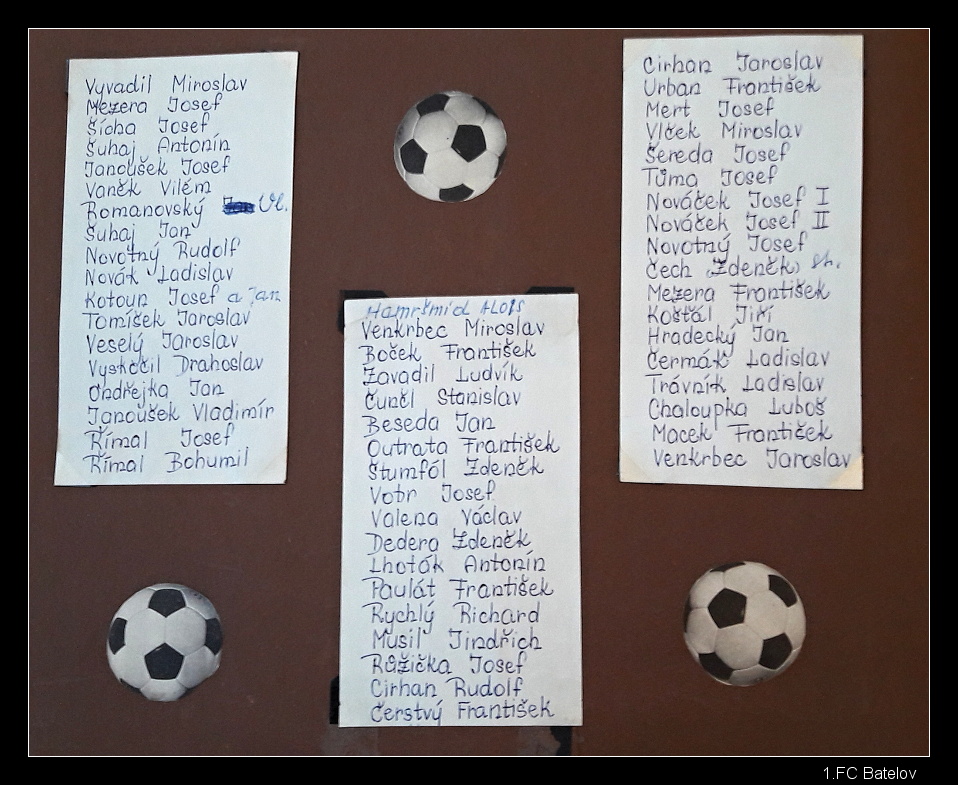 Vyvadil Miroslav
Mezera Josef
Šícha Josef
Šuhaj Antonín
Janoušek Josef
Vaněk Vilém
Romanovský Vl.
Šuhaj Jan
Novotný Rudolf
Novák Ladislav
Kotoun Josef a Jan
Tomíšek Jaroslav
Veselý Jaroslav
Vyskočil Drahoslav
Ondřejka Jan
Janoušek Vladimír
Římal Josef
Římal Bohumil
Hamršmíd Alois
Venkrbec Miroslav
Boček František
Zavadil Ludvík
Čunčl Stanislav
Beseda Jan
Outrata František
Štumfól Zdeněk
Votr Josef
Valena Václav
Dedera Zdeněk
Lhoták Antonín
Paulát František
Rychlý Richard
Musil Jindřich
Růžička Josef
Cirhan Rudolf
Čerstvý František
Cirhan Jaroslav
Urban František
Mert Josef
Vlček Miroslav
Šereda Josef
Tůma Josef
Nováček Josef I
Nováček Josef II
Novotný Josef
Čech Zdeněk
Mezera František
Košťál Jiří
Hradecký Jan
Čermák Ladislav
Trávník Ladislav
Chaloupka Luboš
Macek František
Venkrbec Jaroslav
1.FC Batelov